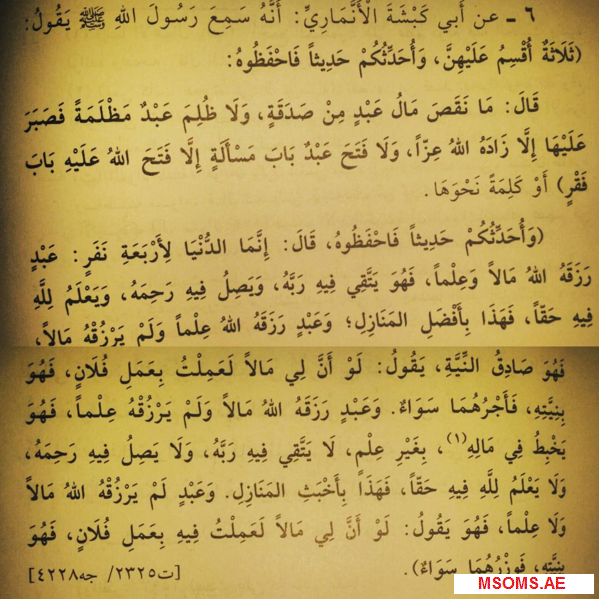 ٦ ـ عن أَبي كَبْشَةَ الْأَنْمَارِيِّ: أَنَّهُ سَمِعَ رَسُولَ اللهِ ﷺ يَقُولُ:
(ثَلَاثَةٌ أُقْسِمُ عَلَيْهِنَّ، وَأُحَدِّثُكُمْ حَدِيثاً فَاحْفَظُوهُ:
قَالَ: مَا نَقَصَ مَالُ عَبْدٍ مِنْ صَدَقَةٍ، وَلَا ظُلِمَ عَبْدٌ مَظْلَمَةً فَصَبَرَ
عَلَيْهَا إِلَّا زَادَهُ اللهُ عِزّاً، وَلَا فَتَحَ عَبْدٌ بَابَ مَسْأَلَةٍ إِلَّا فَتَحَ اللهُ عَلَيْهِ بَابَ
فَقْرٍ) أَوْ كَلِمَةً نَحْوَهَا.
(وَأُحَدِّثُكُمْ حَدِيثاً فَاحْفَظُوهُ، قَالَ: إِنَّمَا الدُّنْيَا لِأَرْبَعَةِ نَفَرٍ: عَبْدٍ
رَزَقَهُ اللهُ مَالاً وَعِلْماً، فَهُوَ يَتَّقِي فِيهِ رَبَّهُ، وَيَصِلُ فِيهِ رَحِمَهُ، وَيَعْلَمُ لِلَّهِ
فِيهِ حَقّاً، فَهَذَا بِأَفْضَلِ المَنَازِلِ؛ وَعَبْدٍ رَزَقَهُ اللهُ عِلْماً وَلَمْ يَرْزُقْهُ مَالاً،
فَهُوَ صَادِقُ النِّيَّةِ، يَقُولُ: لَوْ أَنَّ لِي مَالاً لَعَمِلْتُ بِعَمَلِ فُلَانٍ، فَهُوَ
بِنِيَّتِهِ، فَأَجْرُهُمَا سَوَاءٌ. وَعَبْدٍ رَزَقَهُ اللهُ مَالاً وَلَمْ يَرْزُقْهُ عِلْماً، فَهُوَ
يَخْبِطُ فِي مَالِهِ(١)، بِغَيْرِ عِلْمٍ، لَا يَتَّقِي فِيهِ رَبَّهُ، وَلَا يَصِلُ فِيهِ رَحِمَهُ،
وَلَا يَعْلَمُ لِلَّهِ فِيهِ حَقّاً، فَهَذَا بِأَخْبَثِ المَنَازِلِ. وَعَبْدٍ لَمْ يَرْزُقْهُ اللهُ مَالاً
وَلَا عِلْماً، فَهُوَ يَقُولُ: لَوْ أَنَّ لِي مَالاً لَعَمِلْتُ فِيهِ بِعَمَلِ فُلَانٍ، فَهُوَ
بِنِيَّتِهِ، فَوِزْرُهُمَا سَوَاءٌ). [ت٢٣٢٥/ جه٤٢٢٨]
MSOMS.AE